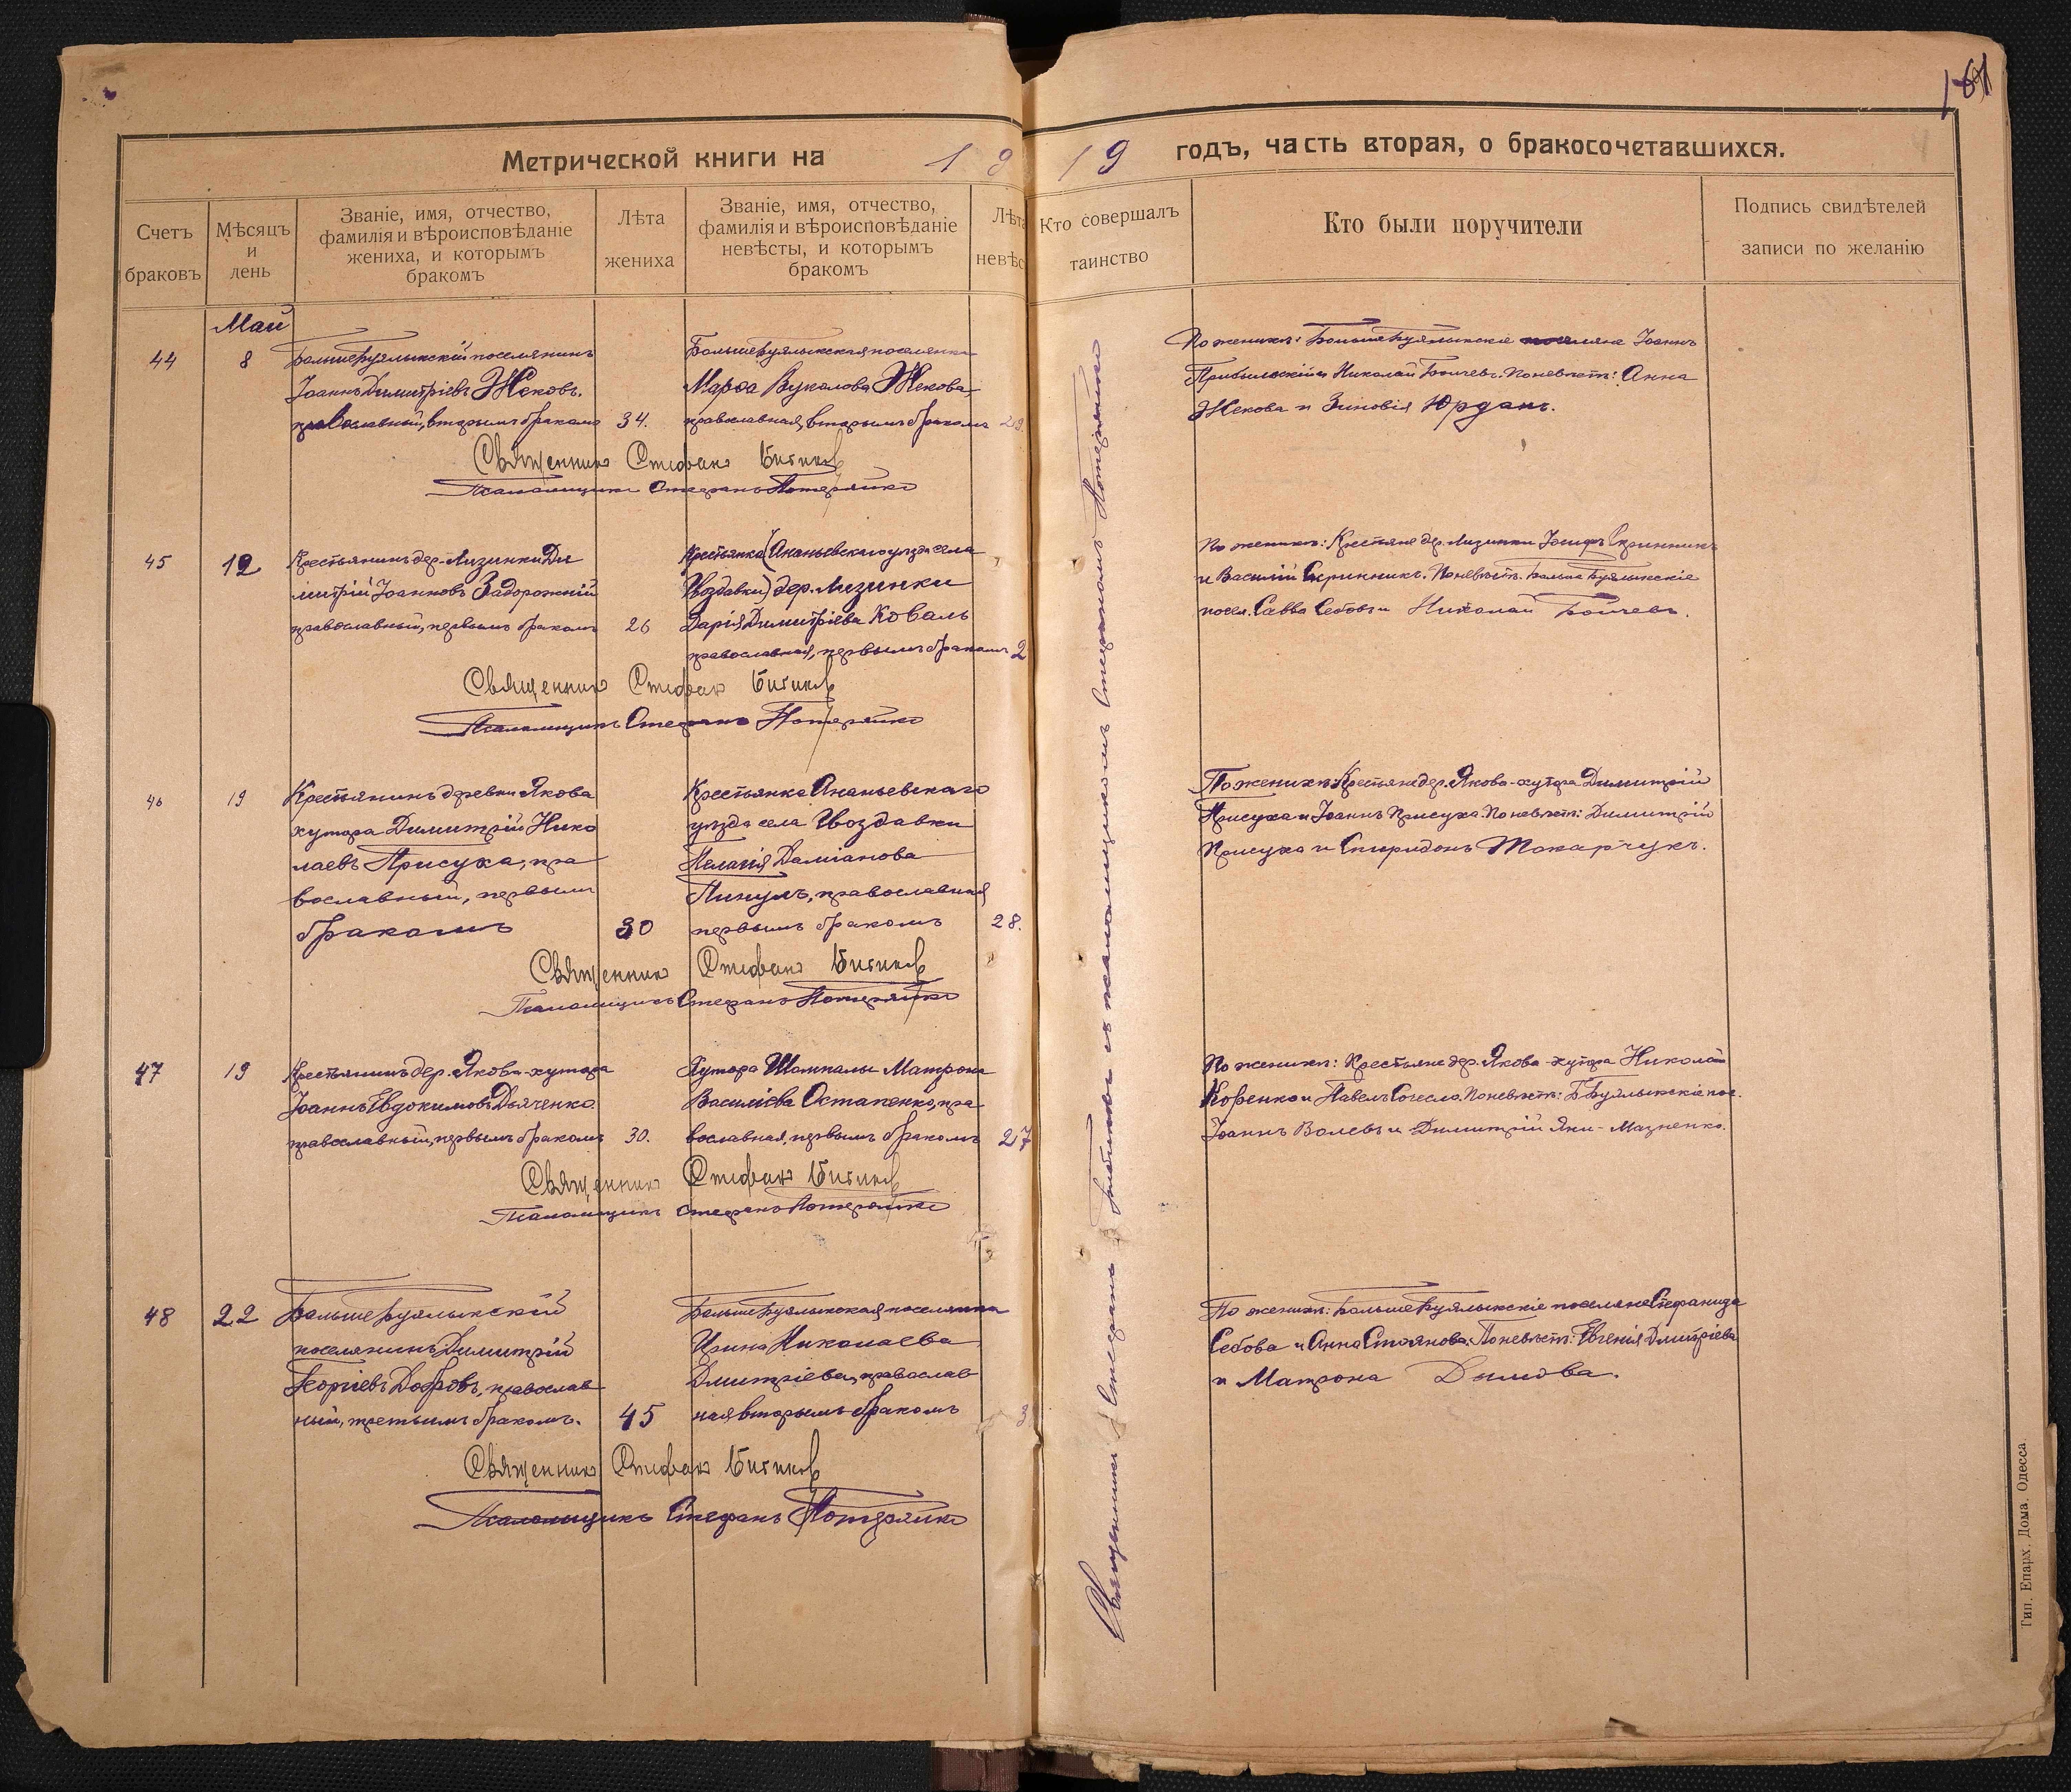 161
Метрической книги на 19
19 годъ, часть вторая, о бракосочетавшихся.
Счетъ браковъ
Мѣсяцъ и день
Званіе, имя, отчество, фамилія и вѣроисповѣданіе жениха, и которымъ бракомъ
Лѣта жениха
Званіе, имя, отчество, фамилія и вѣроисповѣданіе невѣсты, и которымъ бракомъ
Лѣта невѣс
Кто совершалъ таинство
Кто были поручители
Подпись свидѣтелей записи по желанію
Май
44
8
Больше Буялыкскій поселянинъ
Іоаннъ Димитріевъ Жековъ.
православный, вторымъ бракомъ
34.
Больше Буялыкская поселянка
Марѳа Вуколова Жекова,
православная, вторымъ бракомъ
29.
По женихѣ: Больше Буялыкскіе поселяне Іоаннъ
Николай Бойчевъ. По невѣстѣ: Анна
Жекова и Зиновія Юрданъ.
Священникъ Стефанъ
Псаломщикъ Стефанъ Потеряйко
45
12
Крестьянинъ дер. Лизинки Ди
митрій Іоанновъ Задорожній
православный, первымъ бракомъ
26
Крестьянка (Ананьевскаго уѣзда села
Гвоздавки) дер. Лизинки
Дарія Димитріева Коваль
православная, первымъ бракомъ
2
По женихѣ: Крестьяне дер. Лизинки Іосифъ Скринникъ
и Василій Скринникъ. По невѣстѣ: Больше Буялыкскіе
посел. Савва Себовъ и Николай Бойчевъ.
Священникъ Стефанъ
Псаломщикъ Стефанъ Потеряйко
46
19
Крестьянинъ деревни Якова
хутора Димитрій Нико
лаевъ Присуха, пра
вославный, первымъ
бракомъ
30
Крестьянка Ананьевскаго
уѣзда села Гвоздавки
Пелагія Даміанова
православная
первымъ бракомъ
28.
По женихѣ: Крестьяне дер. Якова-хутора Димитрій
Присуха и Іоаннъ Присуха. По невѣстѣ: Димитрій
Присуха и Спиридонъ Токарчукъ.
Священникъ Стефанъ
Псаломщикъ Стефанъ Потеряйко
47
19
Крестьянинъ дер. Якова-хутора
Іоаннъ Евдокимовъ Дьяченко
православный, первымъ бракомъ
30.
Хутора Шомполы Матрона
Василіева Остапенко, пра
вославная, первымъ бракомъ
27
По женихѣ: Крестьяне дер. Якова-хутора Николай
Коренко и Павелъ По невѣстѣ: Б Буялыкскіе пос.
Іоаннъ Волевъ и Димитрій Яни-Мазненко.
Священникъ Стефанъ
Псаломщикъ Стефанъ Потеряйко
48
22
Больше Буялыкскій
поселянинъ Димитрій
Георгіевъ Добровъ, православ
ный, третьимъ бракомъ.
45
Больше Буялыкская поселянка
Ирина Николаева
Дмитріева, православ
ная вторымъ бракомъ
3
По женихѣ: Больше Буялыкскіе поселяне Стефанида
Себова и Анна Стоянова. По невѣстѣ: Евгенія Дмитріева
и Матрона Димова.
Священникъ Стефанъ
Псаломщикъ Стефанъ Потеряйко
Священникъ Стефанъ съ псаломщикомъ Стефаномъ Потеряйко
Тип. Епарх. Дома. Одесса